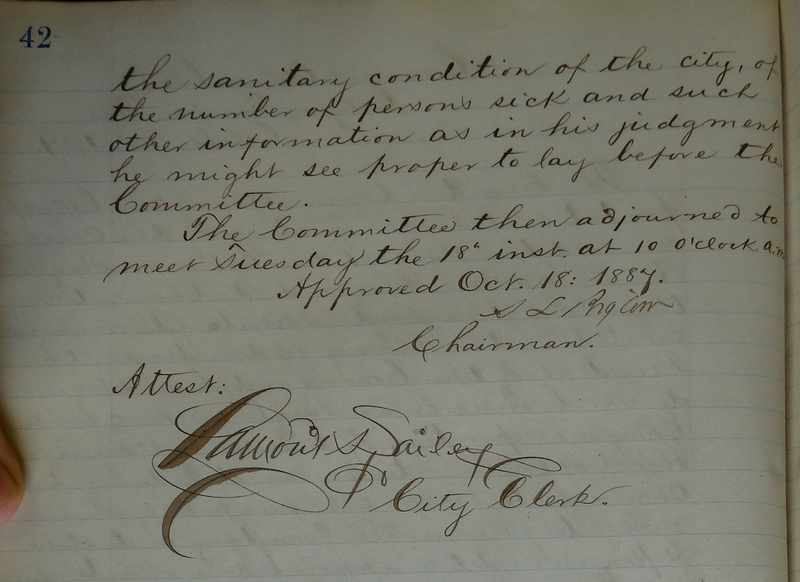 42
the sanitary condition of the city, of
the number of persons sick and such
other information as in his judgment
he might see proper to lay before the
Committee.
The Committee then adjourned to
meet Tuesday the 18" inst. at 10 o'clock a.m
Approved Oct. 18: 1887.
S L
Chairman.
Attest:
Lamont Bailey
City Clerk.